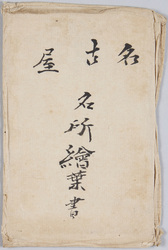 名古屋
名所繪葉書